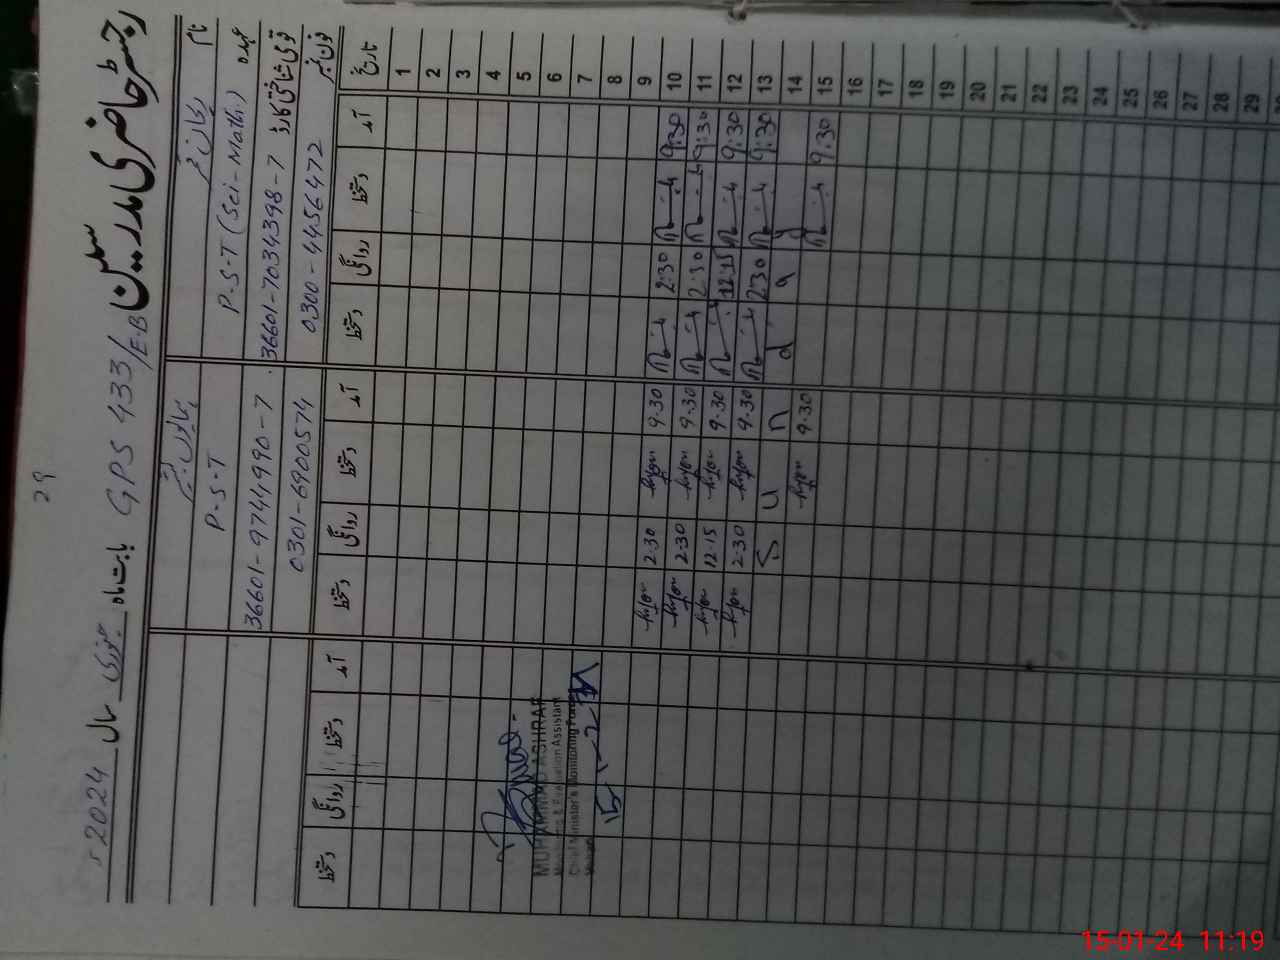 29
رجسٹر حاضری مدرسین سکول GPS 433/E.B بابت ماہ جنوری سال 2024ء
نام
عہدہ P-S-T (Sci-Math) P-S-T
قومی شناختی کارڈ 36601-7034398-7 36601-9744990-7
فون نمبر 0300-4456472 0301-6900574
تاریخ آمد دستخط روانگی دستخط آمد دستخط روانگی دستخط آمد دستخط روانگی دستخط
1
2
3
4
5
6
7
8
9
10 9:30 2:30 9.30 2.30
11 9:30 2:30 9.30 2.30
12 9:30 12:15 9.30 12.15
13 9:30 2:30 9.30 2.30
14 y a d n u S
15 9.30 9.30
16
17
18
19
20
21
22
23
24
25
26
27
28
29
MUHAMMAD ASHRAF
Monitoring & Evaluation Assistant
Chief Minister's Monitoring Force
15-01-24 11:19